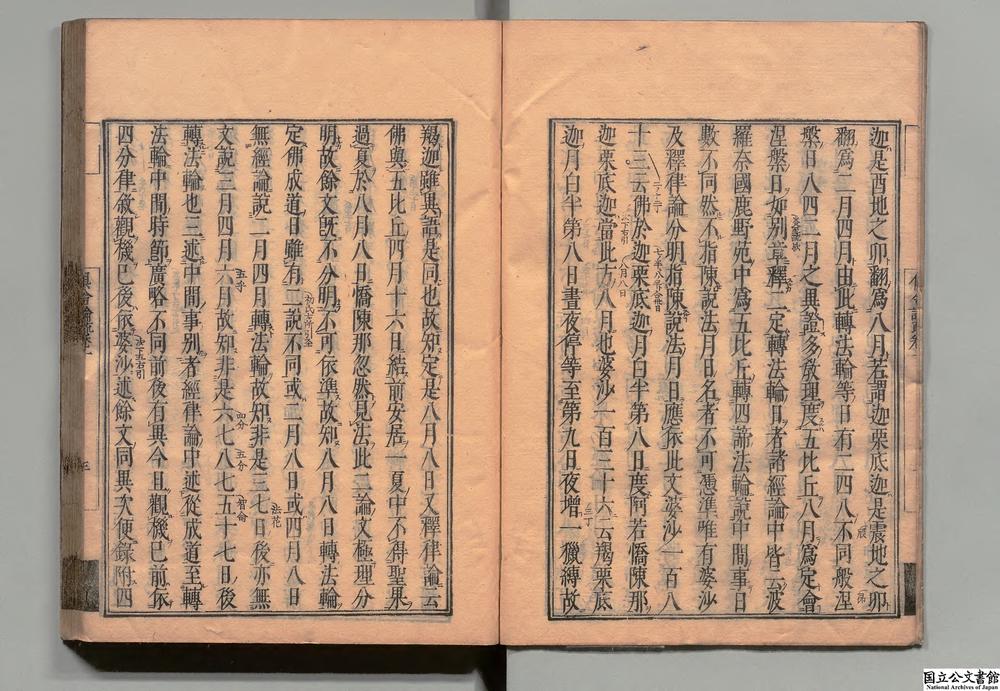 迦是酉地之卯翻爲八月若謂迦栗底迦是震地之卯
翻爲二月四月由此轉法輪等日有二四八不同般涅
槃日八四二月之異證多教理度五比丘八月爲定會
涅槃日如別章釋二定轉法輪日者諸經論中皆云波
羅奈國鹿野苑中爲五比丘轉四諦法輪說中間事日
數不同然不指陳說法月日名者不可憑準唯有婆沙
及釋律論分明指陳說法月日應依此文婆沙一百八
十三云佛於迦栗底迦月白半第八日度阿若憍陳那
迦栗底迦當此方八月也婆沙一百三十六云羯栗底
迦月白半第八日晝夜停等至第九日夜增一臘縛故
羯迦雖異語是同也故知定是八月八日又釋律論云
佛與五比丘四月十六日結前安居一夏中不得聖果
過夏於八月八日憍陳那忽然見法此二論文極理分
明故餘文旣不分明不可依準故知八月八日轉法輪
定佛成道日雖有二說不同或二月八日或四月八日
無經論說二月四月轉法輪故知非是三七日後亦無
文說三月四月六月故知非是六七八七五十七日後
轉法輪也三述中間事別者經律論中述從成道至轉
法輪中間時節廣略不同前後有異今且觀機已前依
四分律敘觀機已後依婆沙述餘文同異次便錄附四
国立公文書館
National Archives of Japan